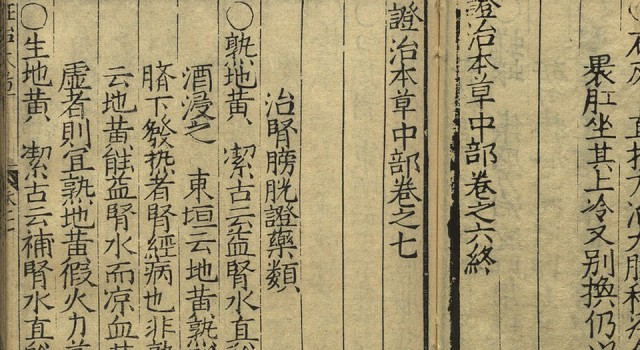 裹肛坐其上冷又別換仍
證治本草中部卷之六終
證治本草中部卷之七
治腎膀胱證藥類
○熟地黃 潔古云益腎水真
酒浸之 東垣云地黃熟
臍下發熱者腎經病也非熟
云地黃能益腎水而凉血
虛者則宜熟地黃假火力
○生地黃 潔古云補腎水真